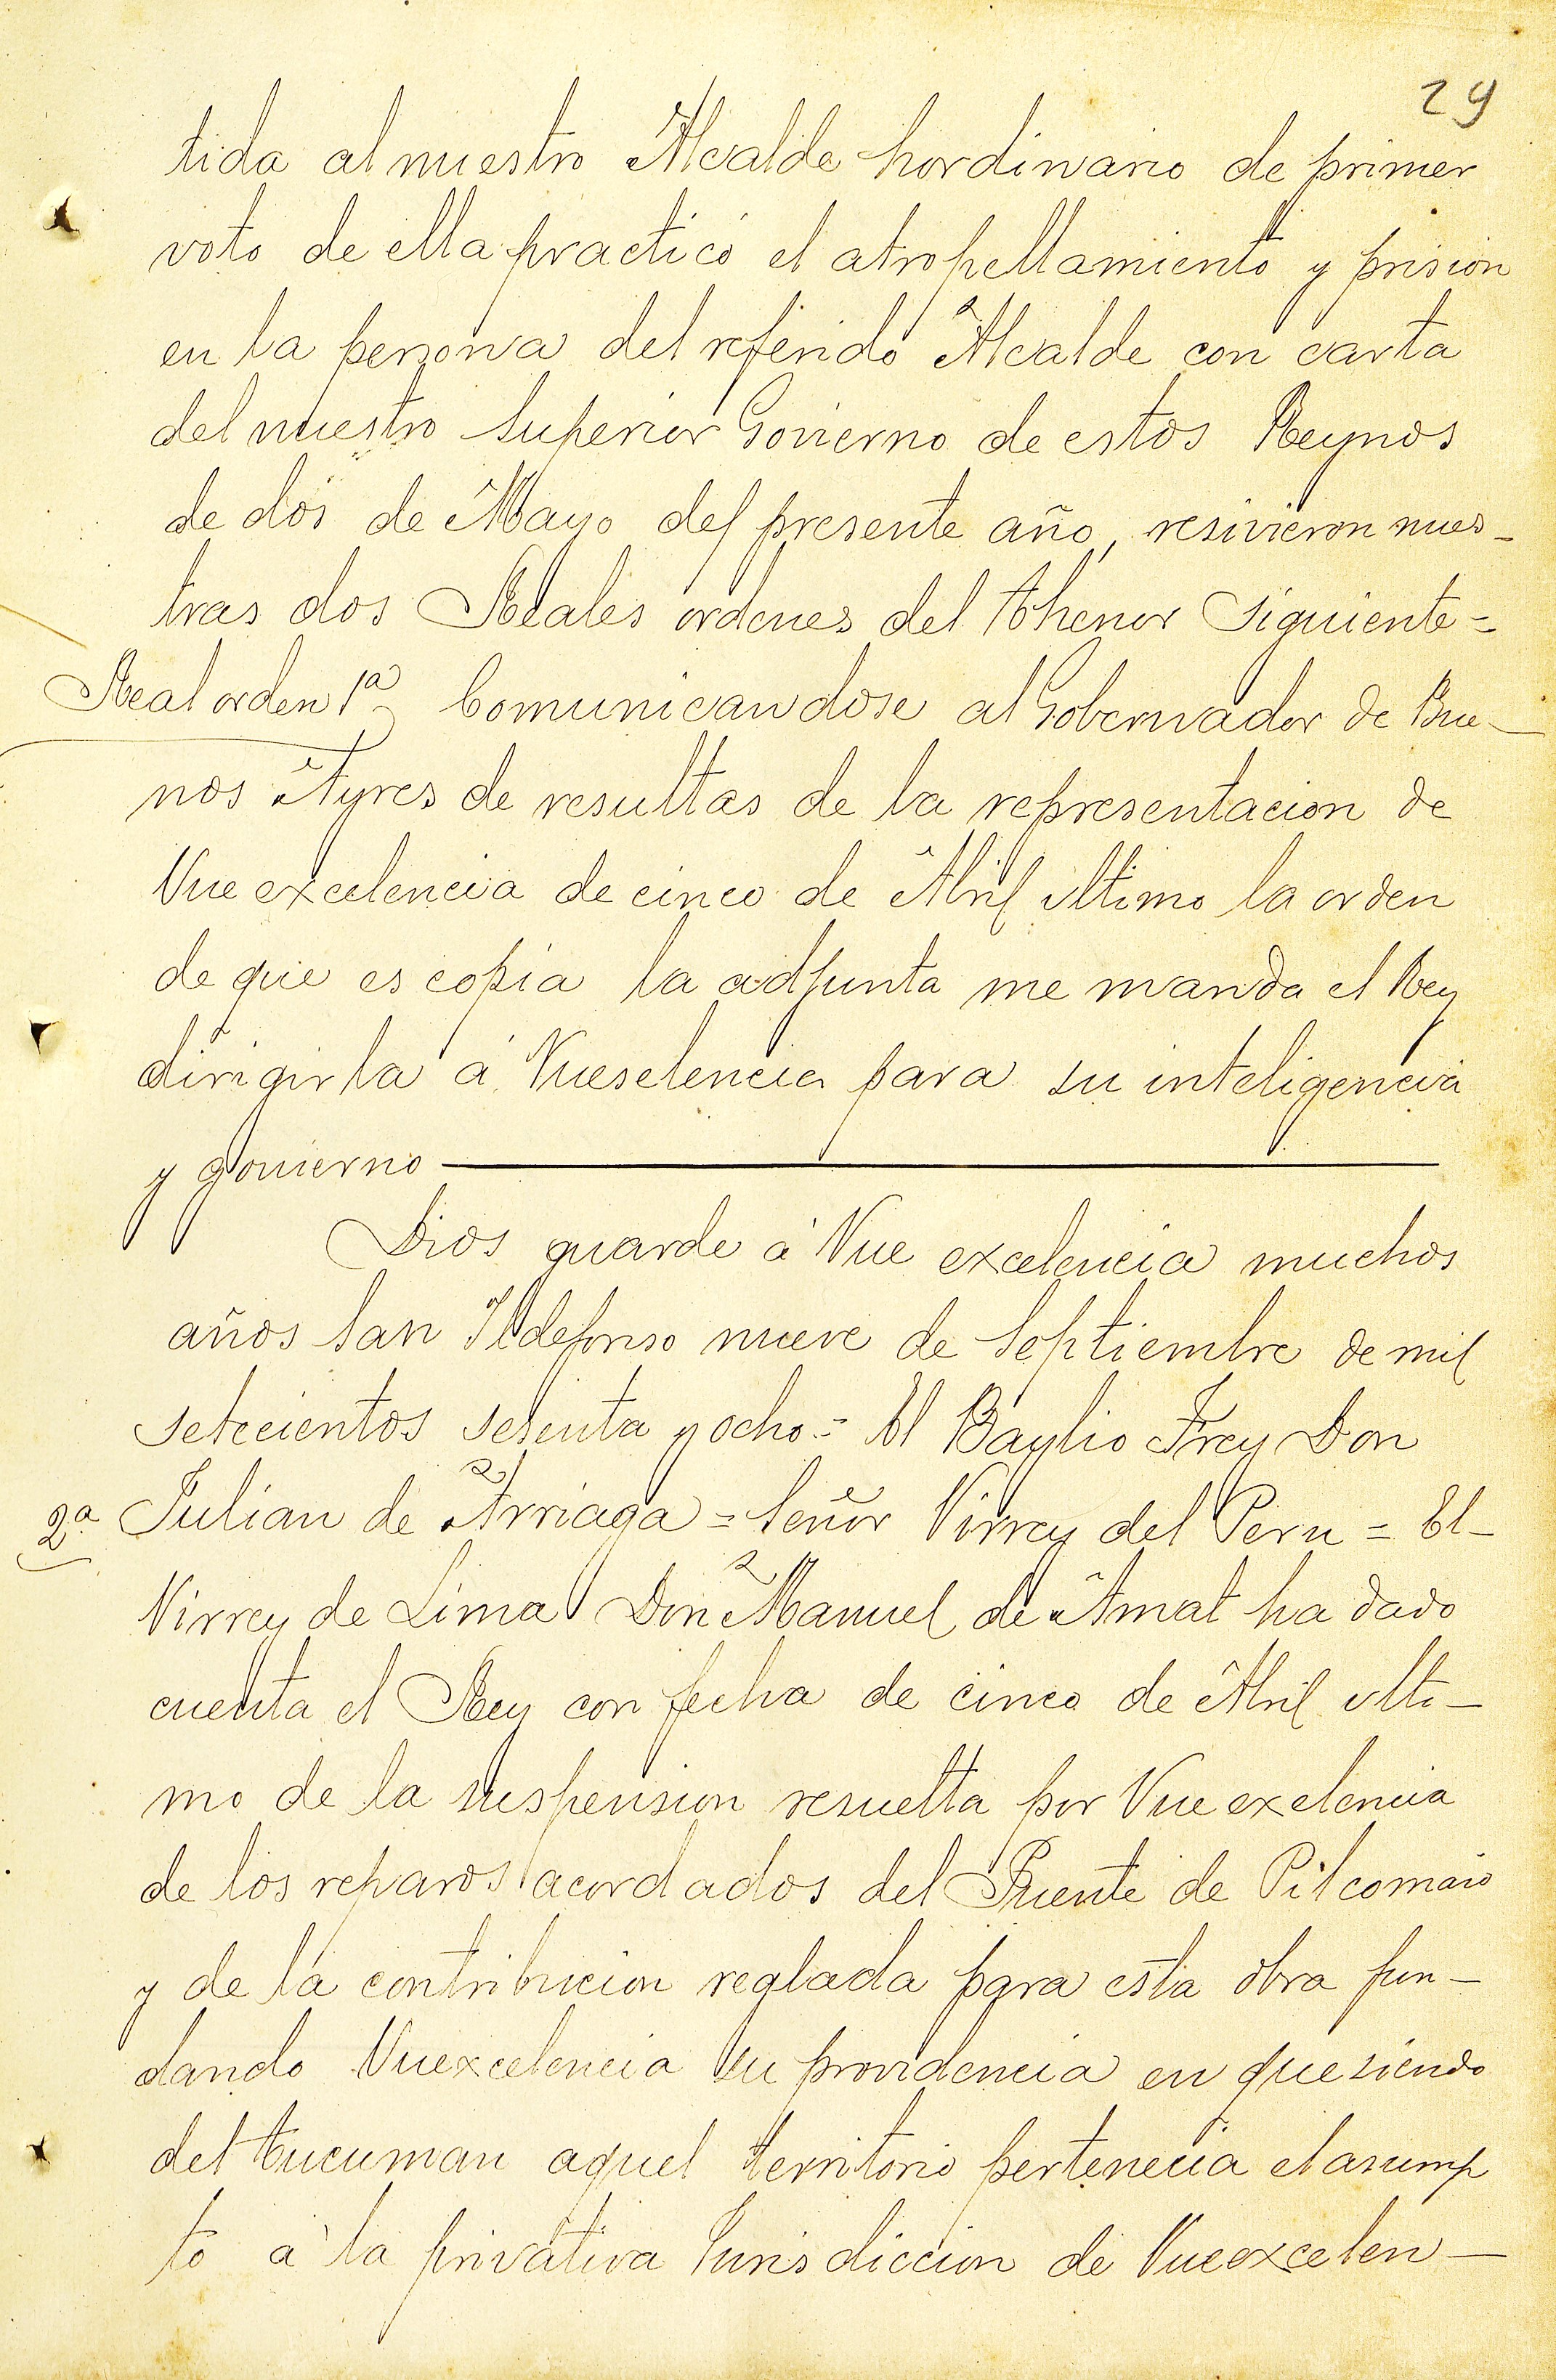 29
tida al nuestro Alcalde hordinario de primer
voto de ella practicó el atropellamiento y prision
en la persona del referido Alcalde con carta
del nuestro Superior Govierno de estos Reynos
de dos de Mayo del presente año, resivieron nues-
tras dos Reales ordenes del thenor siguiente=
Real orden 1ª Comunicandose al Gobernador de Bue-
nos Ayres de resultas de la representacion de
Vue excelencia de cinco de Abril ultimo la orden
de que es copia la adjunta me manda el Rey
dirigirla á Vueselencia para su inteligencia
y govierno
Dios guarde á Vue excelencia muchos
años San Ildefonso nueve de Septiembre de mil
setecientos sesenta y ocho = El Baylio Frey Don
2ª Julian de Arriaga = Señor Virrey del Peru = El-
Virrey de Lima Don Manuel de Amat ha dado
cuenta el Rey con fecha de cinco de Abril ulti-
mo de la suspension resuelta por Vue exelencia
de los reparos acordados del Puente de Pilcomaio
y de la contribucion reglada para esta obra fun-
dando Vuexcelencia su providencia en que siendo
del tucuman aquel territorio pertenecia el asump
to a la privativa Jurisdiccion de Vueexcelen-